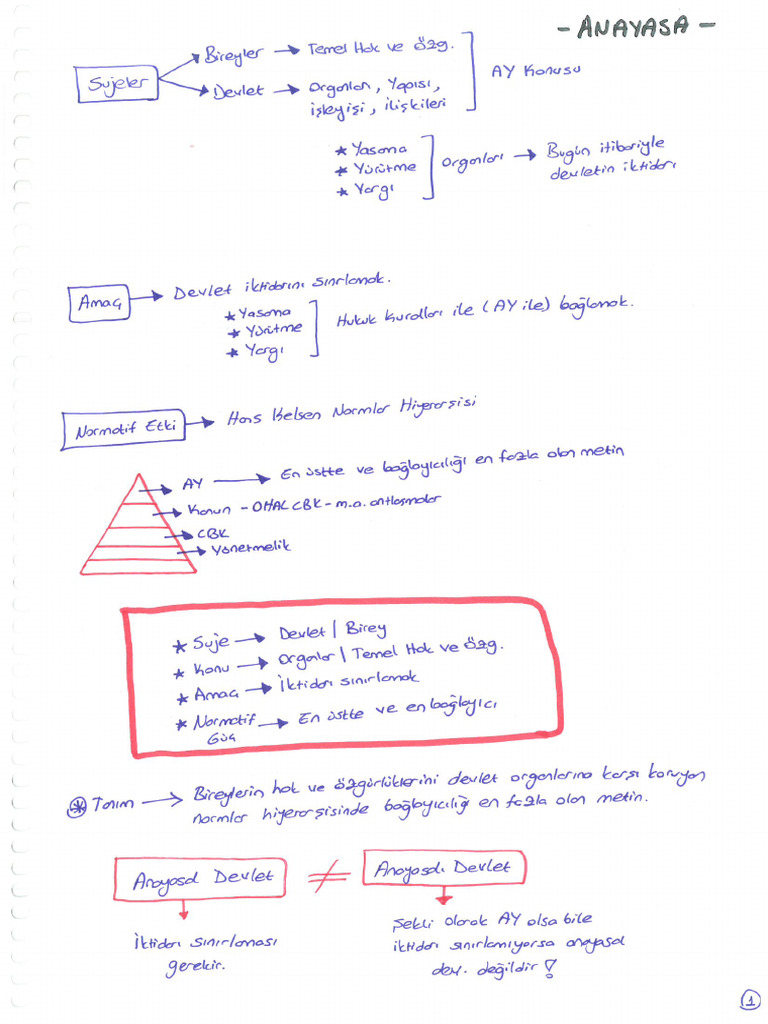 - ANAYASA -
Sujeler
Bireyler → Temel Hak ve Özg.
Devlet → Organları, Yapısı,
işleyişi, ilişkileri
AY Konusu
* Yasama
* Yürütme
* Yargı
Organları → Bugün itibariyle
devletin iktidarı
Amaç → Devlet iktidarını sınırlamak.
* Yasama
* Yürütme
* Yargı
Hukuk Kuralları ile (AY ile) bağlamak.
Normatif Etki → Hans Kelsen Normlar Hiyerarşisi
AY → En üstte ve bağlayıcılığı en fazla olan metin
Kanun - OHAL CBK - m.a. antlaşmalar
CBK
Yönetmelik
* Suje → Devlet / Birey
* Konu → Organlar / Temel Hak ve Özg.
* Amaç → İktidarı sınırlamak
* Normatif → En üstte ve en bağlayıcı
Güç
* Tanım → Bireylerin hak ve özgürlüklerini devlet organlarına karşı koruyan
normlar hiyerarşisinde bağlayıcılığı en fazla olan metin.
Anayasal Devlet ≠ Anayasalı Devlet
İktidarı sınırlaması
gerekir.
Şekli olarak AY olsa bile
iktidarı sınırlamıyorsa anayasal
dev. değildir!
1